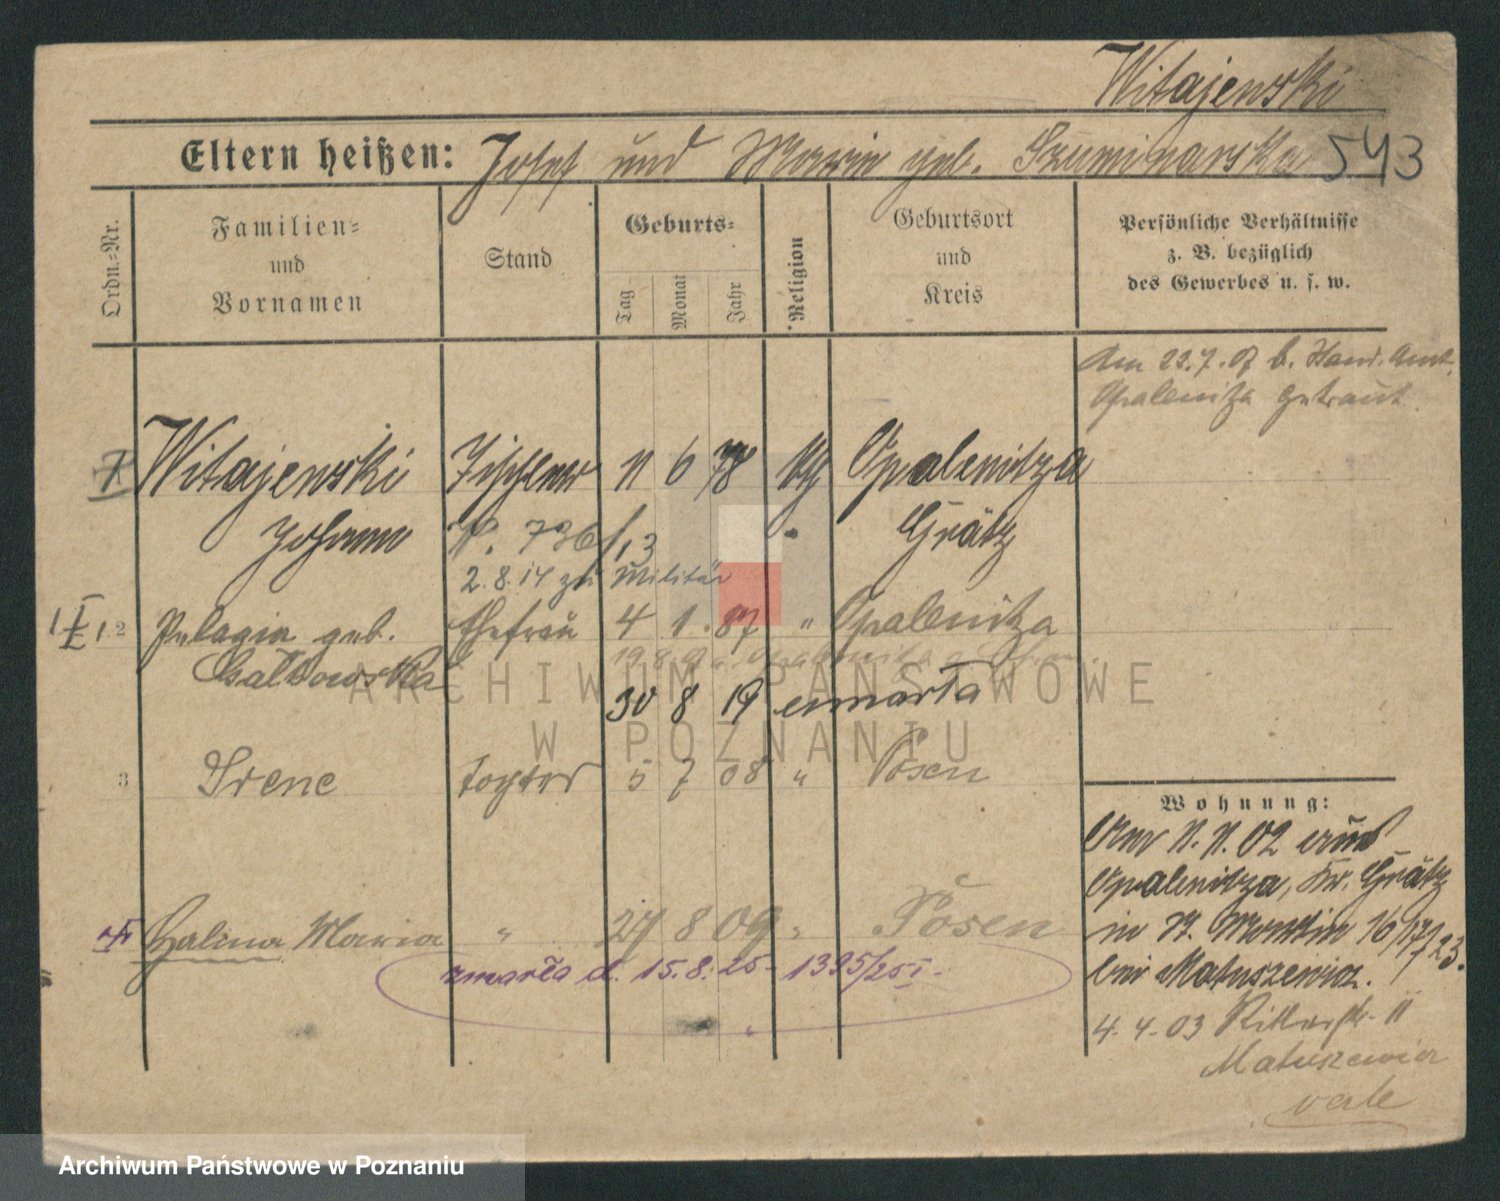 Witajewski
Eltern heißen: Josef und Maria geb. Szuminarska 543
Ordn.-Nr.
Familien-
und
Vornamen
Stand
Geburts-
Tag
Monat
Jahr
Religion
Geburtsort
und
Kreis
Persönliche Verhältnisse
z. B. bezüglich
des Gewerbes u. s. w.
Am 22.7.07 b. Stand. Amt
Opalenitza getraut
Witajewski Tischler 11 6 78 kth Opalenitza
Johann Grätz
2.8.14 zu Militär
2 Pelagia geb. Ehefrau 4 1. 87 " Opalenitza
30 8 19 umarła
3 Irene tochter 5 7 08 " Posen
Halina Maria " 27 8 09 " Posen
zmarła d. 15.8.25 - 1395/25 I.
Wohnung:
Am 11.11.02 aus
Opalenitza, Kr. Grätz
in St. Martin 16/17
bei Matuszewicz.
4.4.03 Ritterstr. 11
Matuszewicz
ARCHIWUM PAŃSTWOWE
W POZNANIU
Archiwum Państwowe w Poznaniu